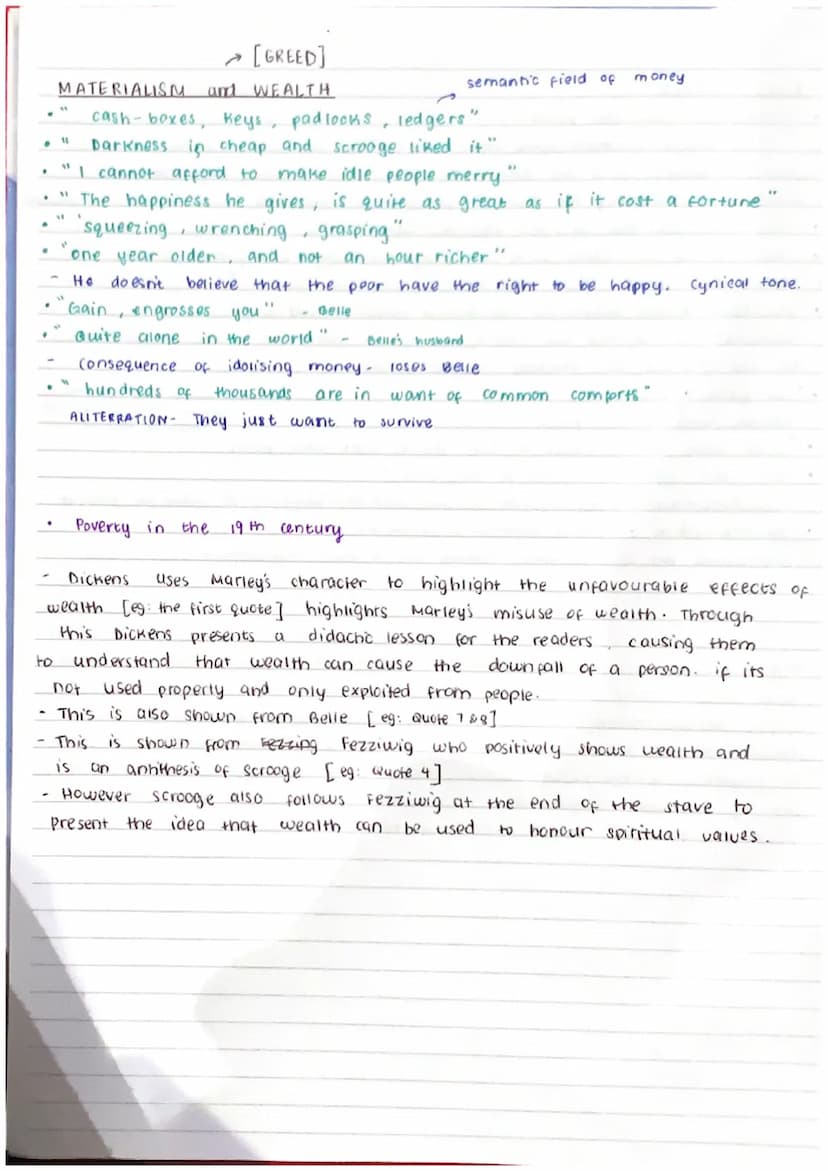 → [GREED]
MATERIALISM and WEALTH
semantic field of money
• " cash-boxes, keys, padlocks, ledgers"
• " Darkness in cheap and scrooge liked it"
• " I cannot afford to make idle people merry"
• " The happiness he gives, is quite as great as if it cost a fortune"
• " 'squeezing, wrenching, grasping"
• "one year older, and not an hour richer"
- He doesn't believe that the poor have the right to be happy. Cynical tone.
• "Gain, engrosses you" - Belle
• " Quite alone in the world" - Belle's husband
- Consequence of idolising money - loses Belle
• " hundreds of thousands are in want of common comforts"
ALITERRATION - They just want to survive
• Poverty in the 19th century
- Dickens uses Marley's character to highlight the unfavourable effects of
wealth [eg: the first quote] highlights Marley's misuse of wealth. Through
this Dickens presents a didachc lesson for the readers, causing them
to understand that wealth can cause the downfall of a person. if its
not used properly and only exploited from people.
- This is also shown from Belle [eg: Quote 7 & 8]
- This is shown from Fezziwig who positively shows wealth and
is an anhithesis of scrooge [eg: Quote 4]
- However scrooge also follows Fezziwig at the end of the stave to
present the idea that wealth can be used to honour spiritual values.